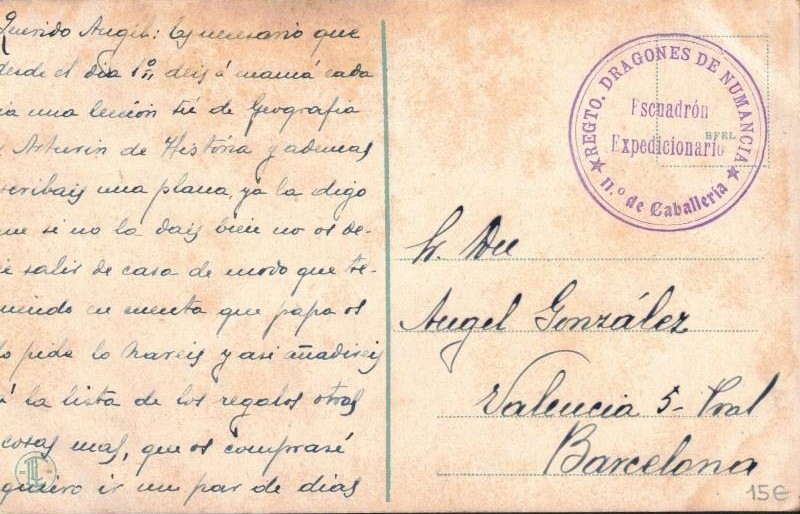 Querido Angel: Es necesario que
desde el dia 1º, deis á mamá cada
dia una lección tú de Geografia
y Arturin de História y ademas
escribais una plana, ya la digo
que si no la dais bien no os de-
je salir de casa de modo que te-
niendo en cuenta que papa os
lo pide lo hareis y asi añadireis
á la lista de los regalos otras
cosas mas, que os compraré
quiero ir un par de dias
REGTO. DRAGONES DE NUMANCIA
Escuadrón
Expedicionario
11.º de Caballeria
Sr. Dn
Angel González
Valencia 5- Pral
Barcelona
15€